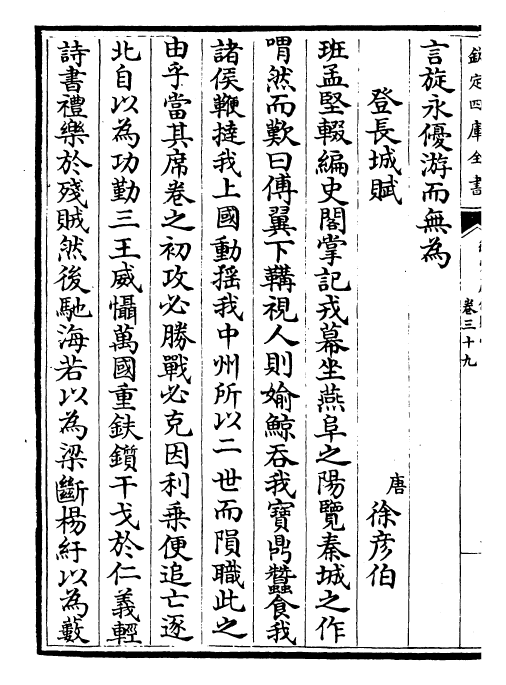 欽定四庫全書
卷三十九
言旋永優游而無為
登長城賦
唐 徐彦伯
班孟堅輟編史閣掌記戎幕坐燕阜之陽覽秦城之作
喟然而歎曰傅翼下鞲視人則媮鯨吞我寶鼎蠶食我
諸侯鞭撻我上國動揺我中州所以二世而隕職此之
由乎當其席卷之初攻必勝戰必克因利乗便追亡逐
北自以為功勤三王威懾萬國重鈇鑕干戈於仁義輕
詩書禮樂於殘賊然後馳海若以為梁斷楊紆以為藪